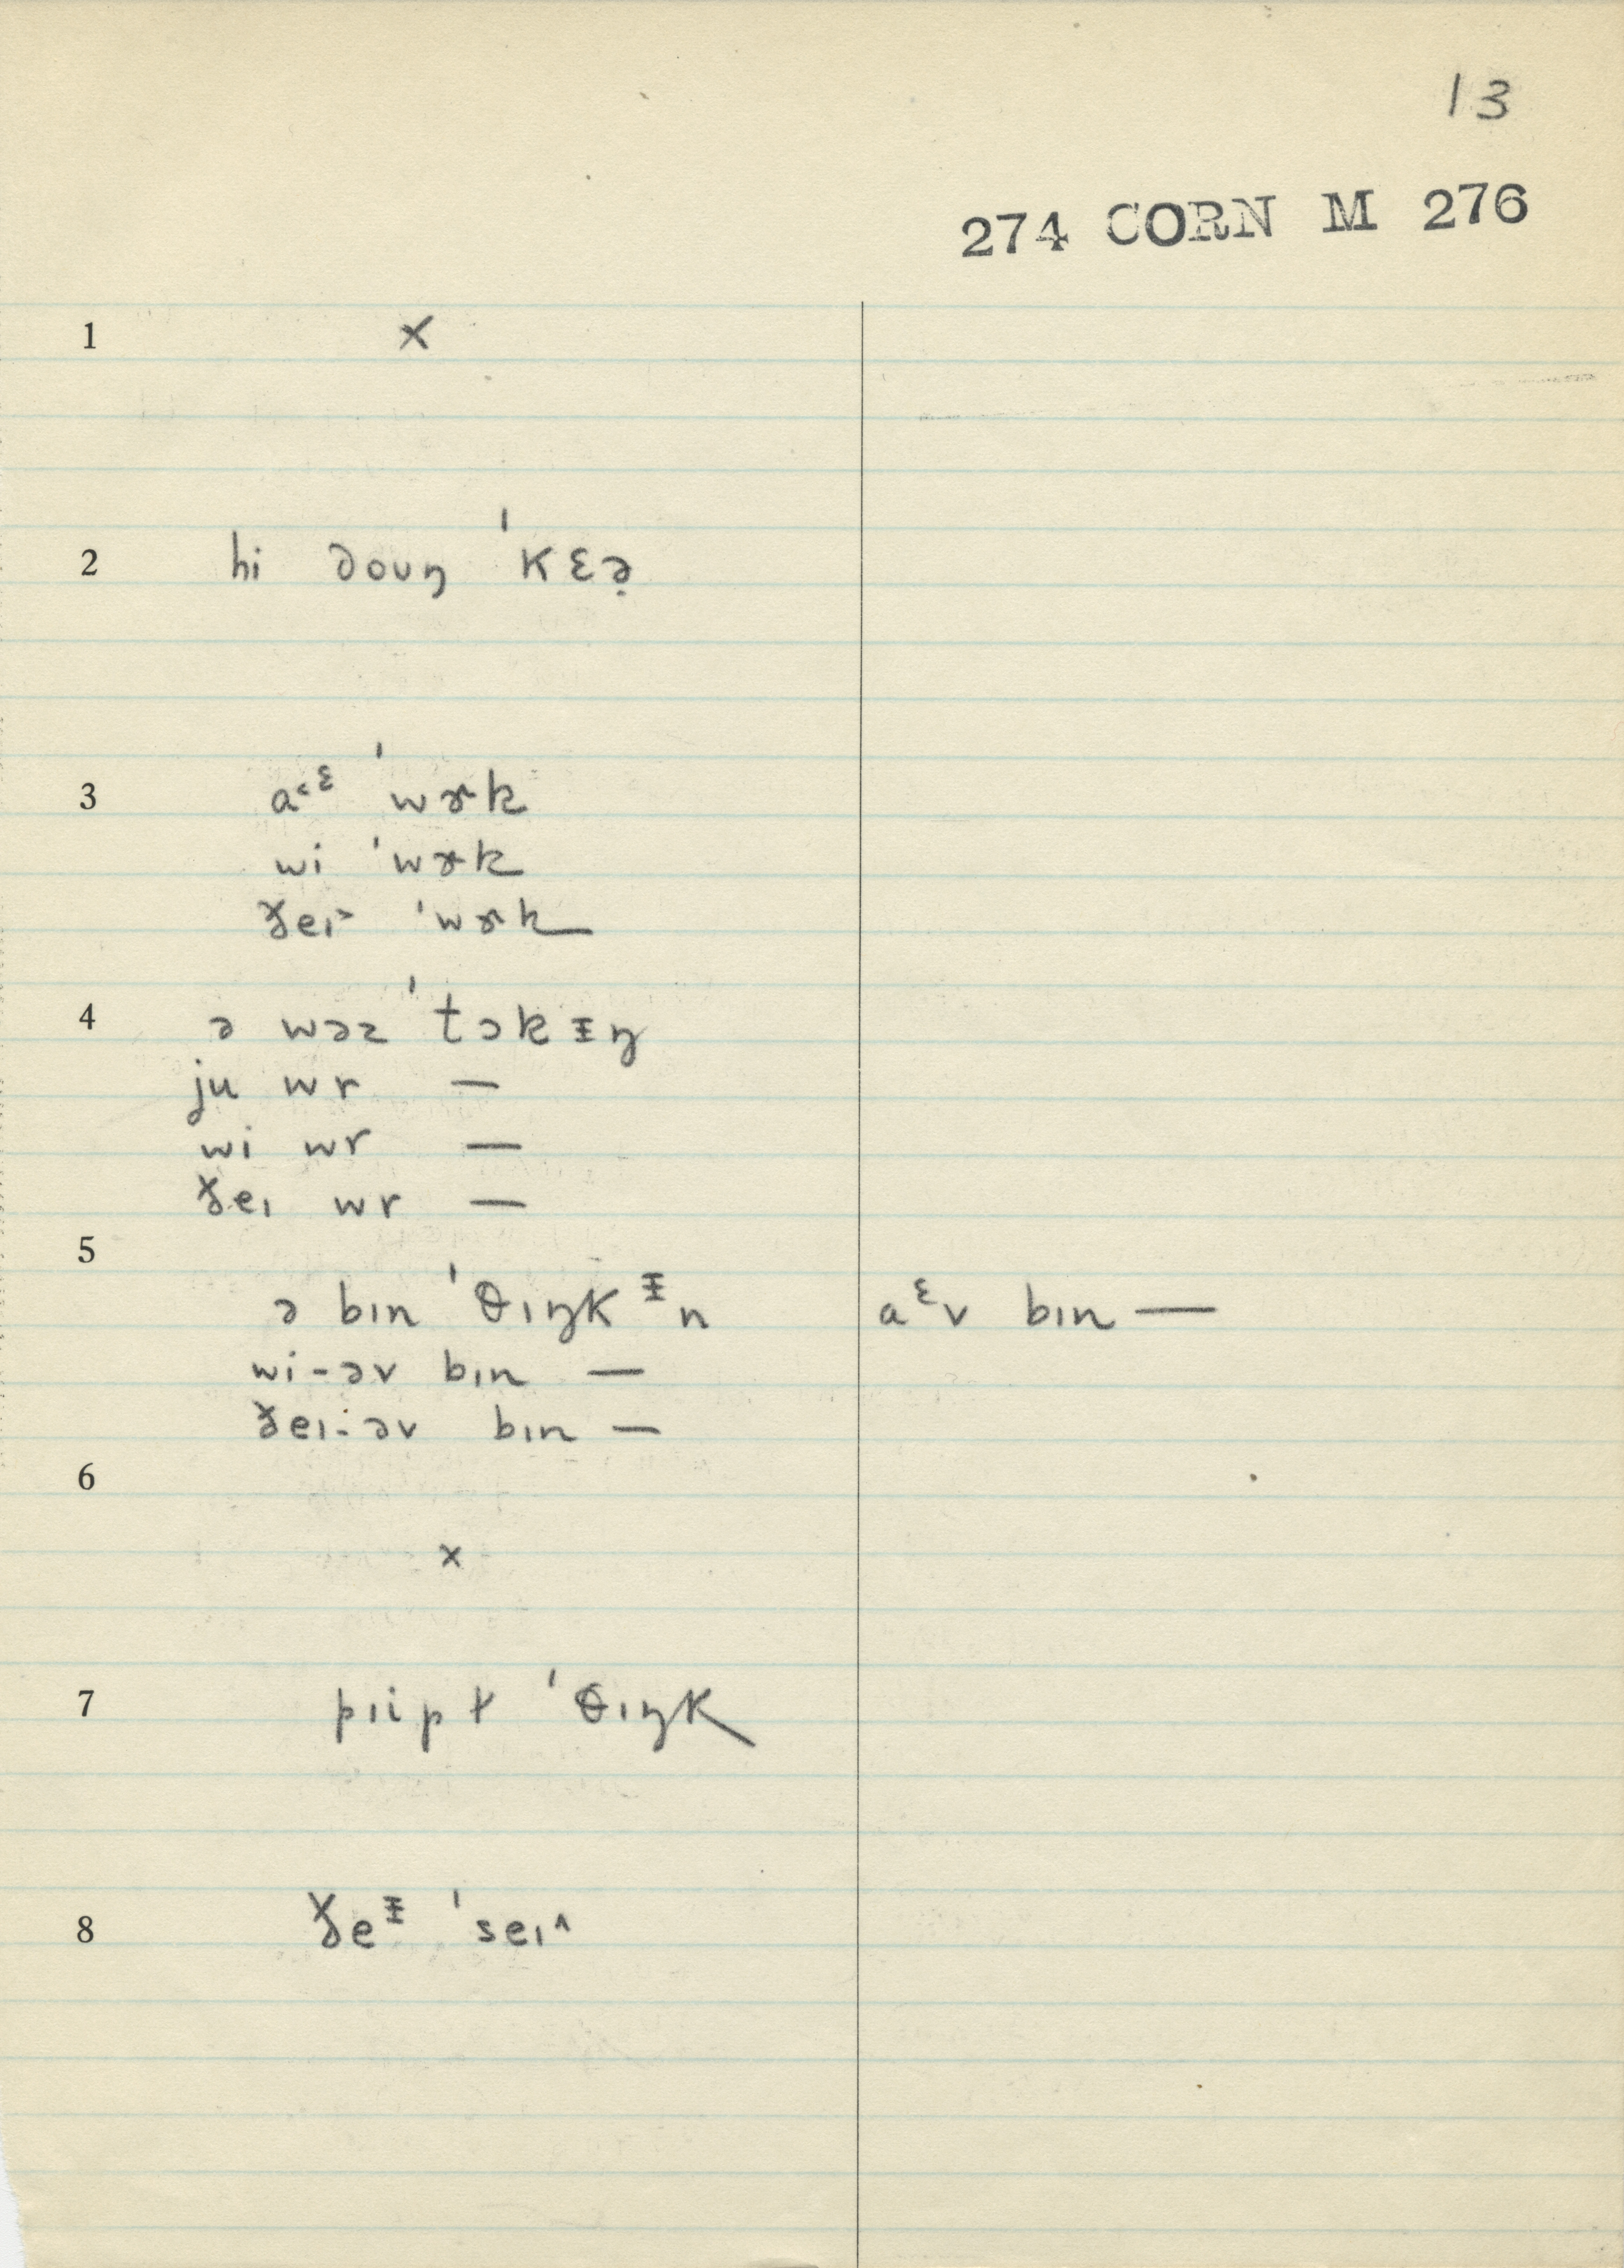 13
274 CORN M 276
1 ×
2 hi doʊŋ ˈkɛə̣
3 a˂ᵋ ˈwɚk
wi ˈwɚk
ðeɪ˃ ˈwɚk
4 ə wəz ˈtɔkɪ̵ŋ
ju wr —
wi wr —
ðeɪ wr —
5
ə bɪn ˈθɪŋkᵻn aᵋv bɪn —
wi-əv bɪn —
ðeɪ-əv bɪn —
6
×
7 pɪipɫ ˈθɪŋk
8 ðeᵻ ˈseɪ˄